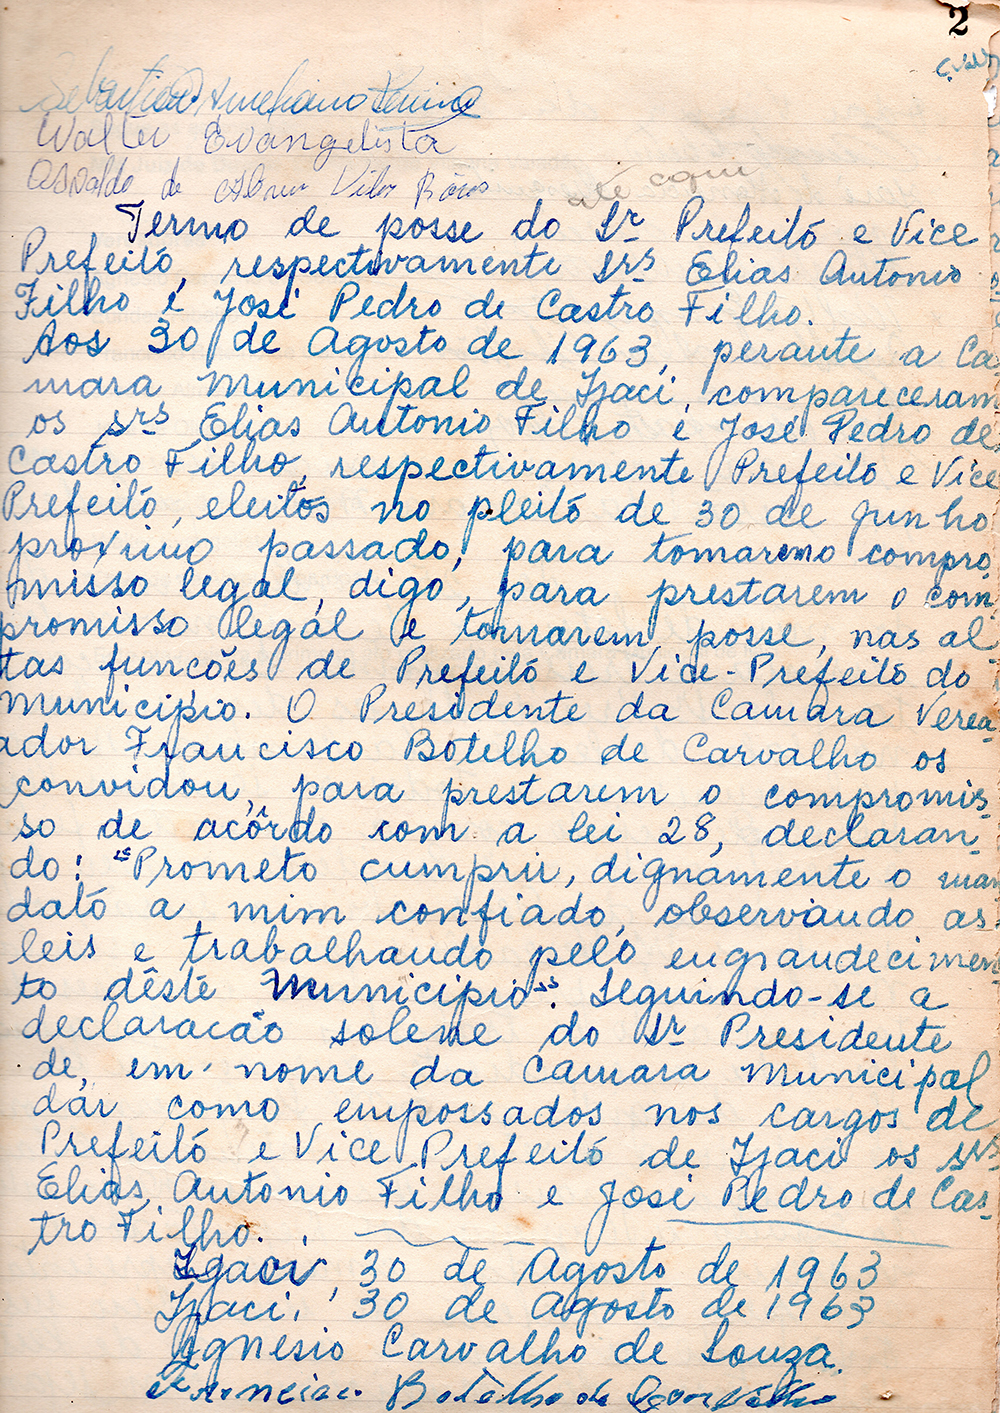 2
Walter Evangelista
Osvaldo de Vilas Bôas
até aqui
Termo de posse do Sr Prefeitó e Vice
Prefeitó, respectivamente Srs Elias Antonio
Filho e José Pedro de Castro Filho.
Aos 30 de Agosto de 1963, perante a Ca-
mara Municipal de Ijaci, compareceram
os Srs Elias Antonio Filho e José Pedro de
Castro Filho, respectivamente Prefeitó e Vice
Prefeitó, eleitos no pleitó de 30 de Junho
proximo passado, para tomarem o compro
misso legal, digo, para prestarem o com-
promisso legal e tomarem posse, nas al-
tas funcões de Prefeitó e Vice-Prefeitó do
Municipio. O Presidente da Camara Verea-
ador Francisco Botelho de Carvalho os
convidou, para prestarem o compromis-
so de acôrdo com a lei 28, declaran-
do: "Prometo cumprir, dignamente o man
dató a mim confiado, observando as
leis e trabalhando pelo engrandecimen-
to dêste Municipio". Seguindo-se a
declaracão solene do Sr Presidente
de, em nome da Camara Municipal
dar como empossados nos cargos de
Prefeitó e Vice Prefeitó de Ijaci os Srs
Elias Antonio Filho e José Pedro de Cas-
tro Filho.
Ijaci, 30 de Agosto de 1963
Ijaci, 30 de Agosto de 1963
Ignesio Carvalho de Souza.
Francisco Botelho de Carvalho